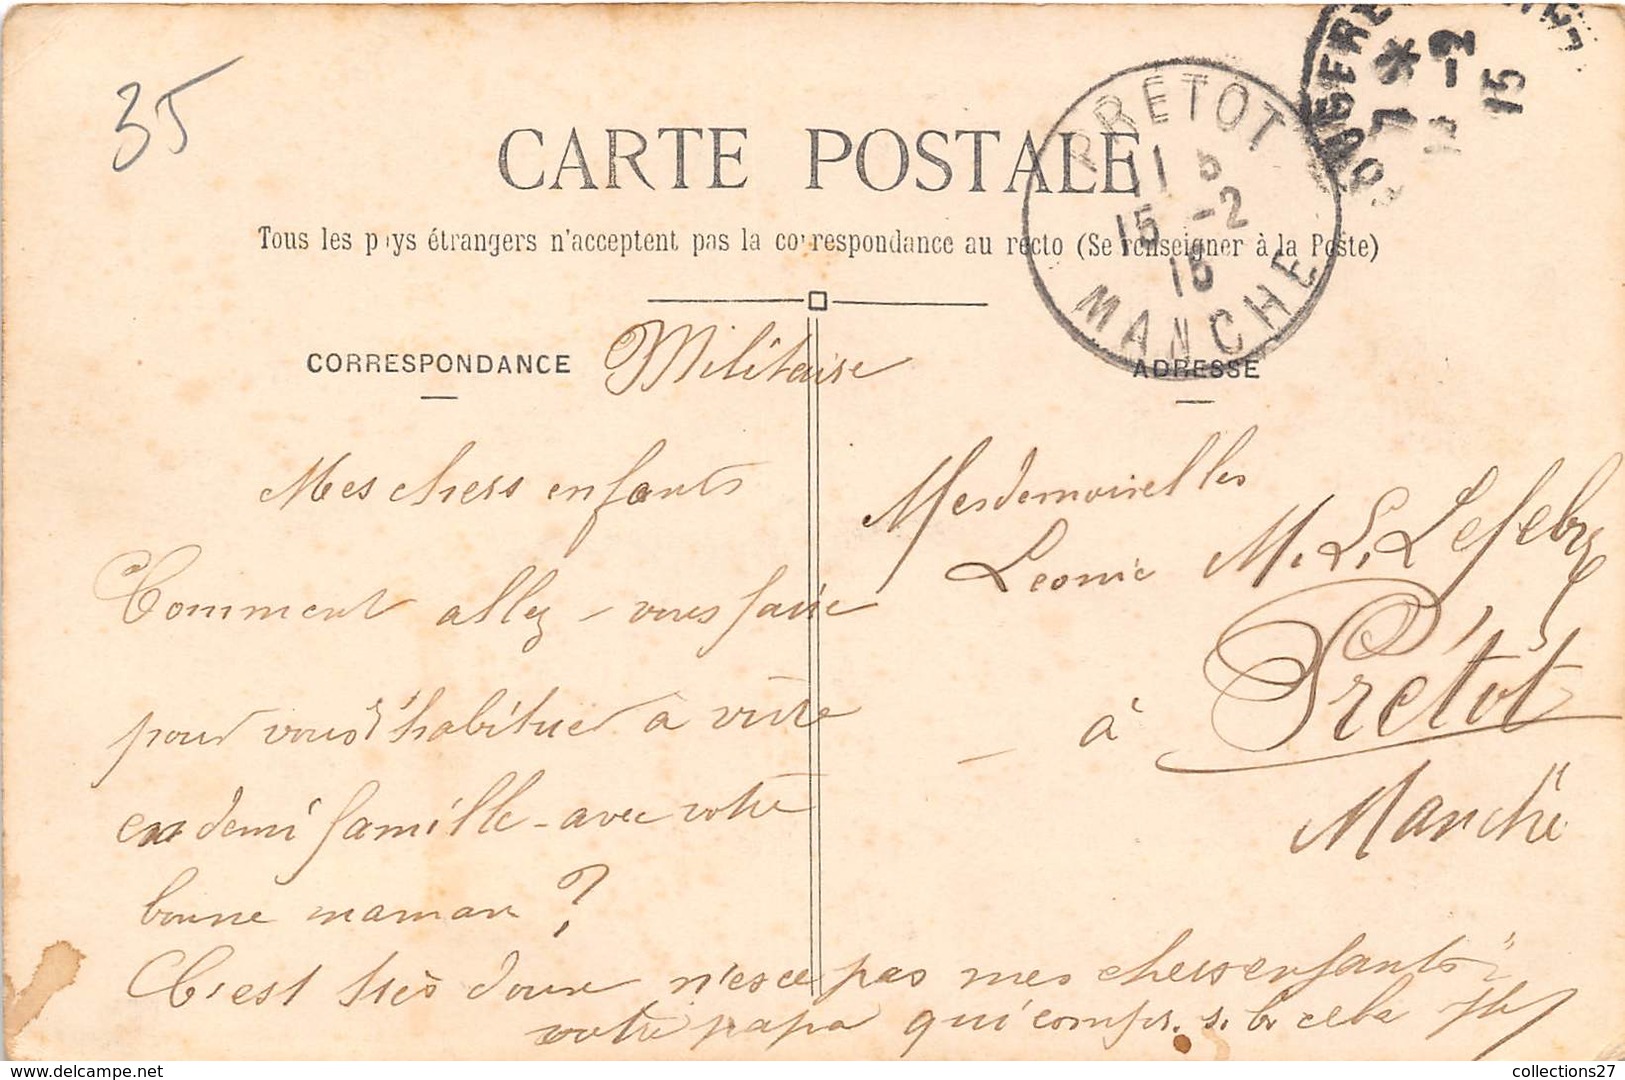 35
CARTE POSTALE
Tous les pays étrangers n'acceptent pas la correspondance au recto (Se renseigner à la Poste)
PRÉTOT
11
15 -2
15
MANCHE
7 *
-2
15
CORRESPONDANCE Militaire
ADRESSE
Mes chers enfants
Comment allez-vous faire
pour vous habituer à vivre
en demi famille - avec votre
bonne maman ?
C'est très doux n'esce pas mes chers enfants
votre papa qui comps. s. b. cela
Mesdemoiselles
Leonie M. L. Lefebre
à Prétot
Manche
collections27